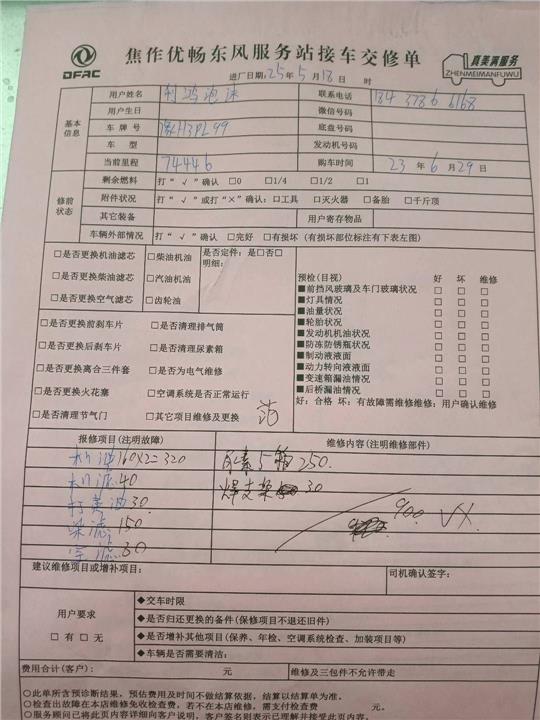 DFAC
焦作优畅东风服务站接车交修单
真美满服务
ZHENMEIMANFUWU
进厂日期: 25年 5月 18日 时
基本信息
用户姓名 联系电话 184 3786 6168
用户生日 微信号码
车牌号 豫H3PL99 底盘号码
车型 发动机号码
当前里程 74446 购车时间 23年 6月29日
修前状态
剩余燃料 打“√”确认 □0 □1/4 □1/2 □1
附件状况 打“√”或打“×”确认: □工具 □灭火器 □备胎 □千斤顶
其它装备 用户寄存物品
车辆外部情况 打“√”确认 □完好 □有损坏 (有损坏部位标注有下表左图)
□是否更换机油滤芯 □柴油机油 是否定件: 是□否□
明细:
□是否更换柴油滤芯 □汽油机油
□是否更换空气滤芯 □齿轮油
预检(目视) 好 坏 维修
■前挡风玻璃及车门玻璃状况 □ □ □
■灯具情况 □ □ □
■油量状况 □ □ □
■轮胎状况 □ □ □
■发动机机油状况 □ □ □
■防冻防锈瓶状况 □ □ □
■制动液液面 □ □ □
■动力转向液液面 □ □ □
■变速箱漏油情况 □ □ □
■后桥漏油情况 □ □ □
好: 合格 坏: 有故障需维修维修: 用户确认维修
□是否更换前刹车片 □是否清理排气筒
□是否更换后刹车片 □是否清理尿素箱
□是否更换离合三件套 □是否为电气维修
□是否更换火花塞 □空调系统是否正常运行
□是否清理节气门 □其它项目维修及更换
报修项目(注明故障) 维修内容(注明维修部件)
机油160x2=320 尿素5箱250.
机滤40 焊支架 30
打黄油30
柴滤150 900. VX.
空滤80
建议维修项目或增补项目: 司机确认签字:
用户要求
□有 □无
◆交车时限
◆是否归还更换的备件(保修项目不退还旧件)
◆是否增补其他项目(保养、年检、空调系统检查、加装项目等)
◆车辆是否需要清洁:
费用合计(客户): 元 维修及三包件不允许带走
○此单所含预诊断结果，预估费用及时间不做结算依据，结算以结算单为准。
○检查出故障在本店维修免收检查费，若不在本店维修，需支付检查费 元。
○服务顾问已将此页内容详细向客户说明，客户签名则表示已理解并接受此页内容。